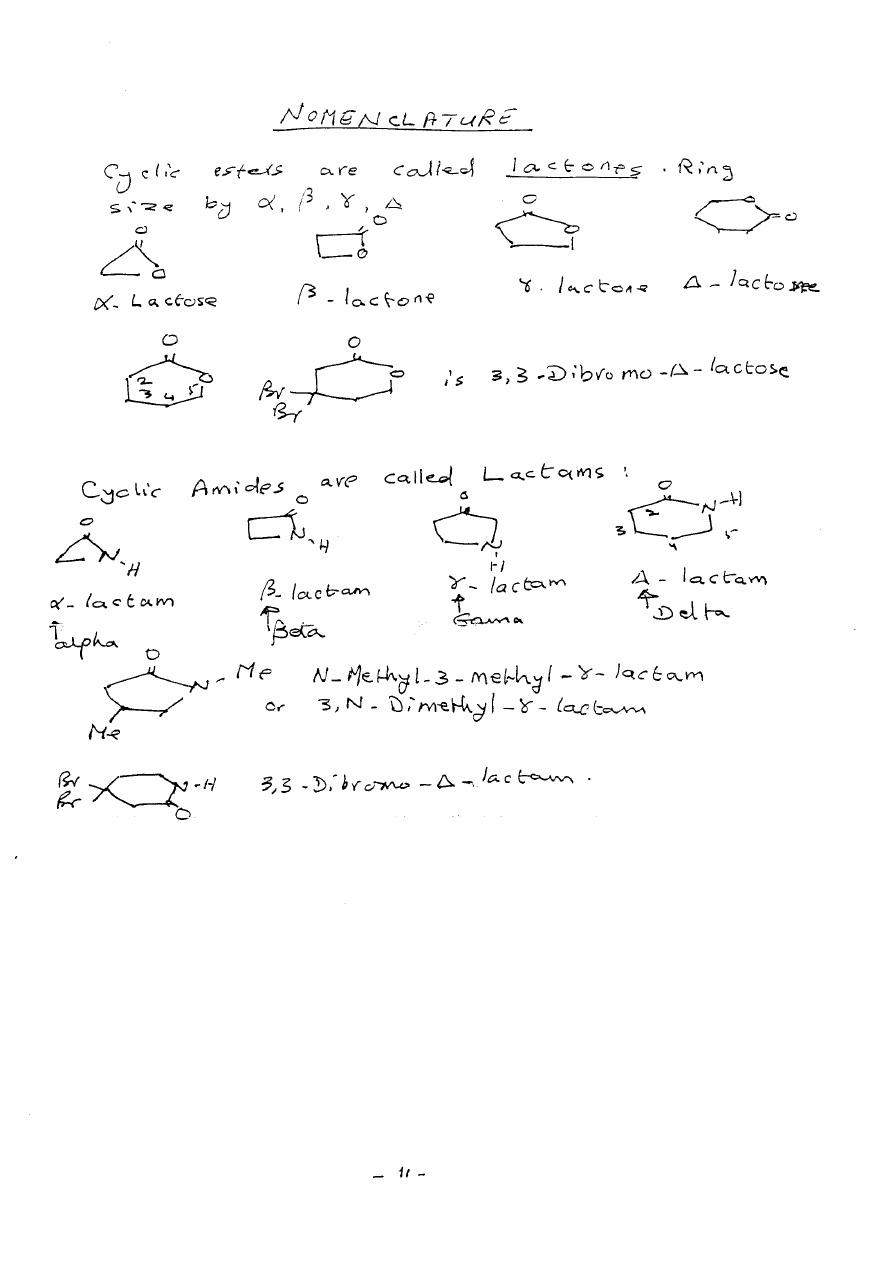 NOMENCLATURE
Cyclic esters are called lactones. Ring
size by α, β, γ, Δ
O O O O
O O O O
α- Lactose β - lactone γ. lactone Δ - lactone
O O
2 O O
3 4 5 Br is 3,3-Dibromo-Δ-lactose
Br
Cyclic Amides are called Lactams :
O O O O
N-H N-H N-H N-H
2 3 4 5
α- lactam β- lactam γ- lactam Δ - lactam
↑ alpha ↑ Beta ↑ Gama ↑ Delta
O
N-Me N-Methyl-3-methyl-γ-lactam
Me or 3,N-Dimethyl-γ-lactam
Br N-H 3,3-Dibromo-Δ-lactam.
Br O
- 11 -